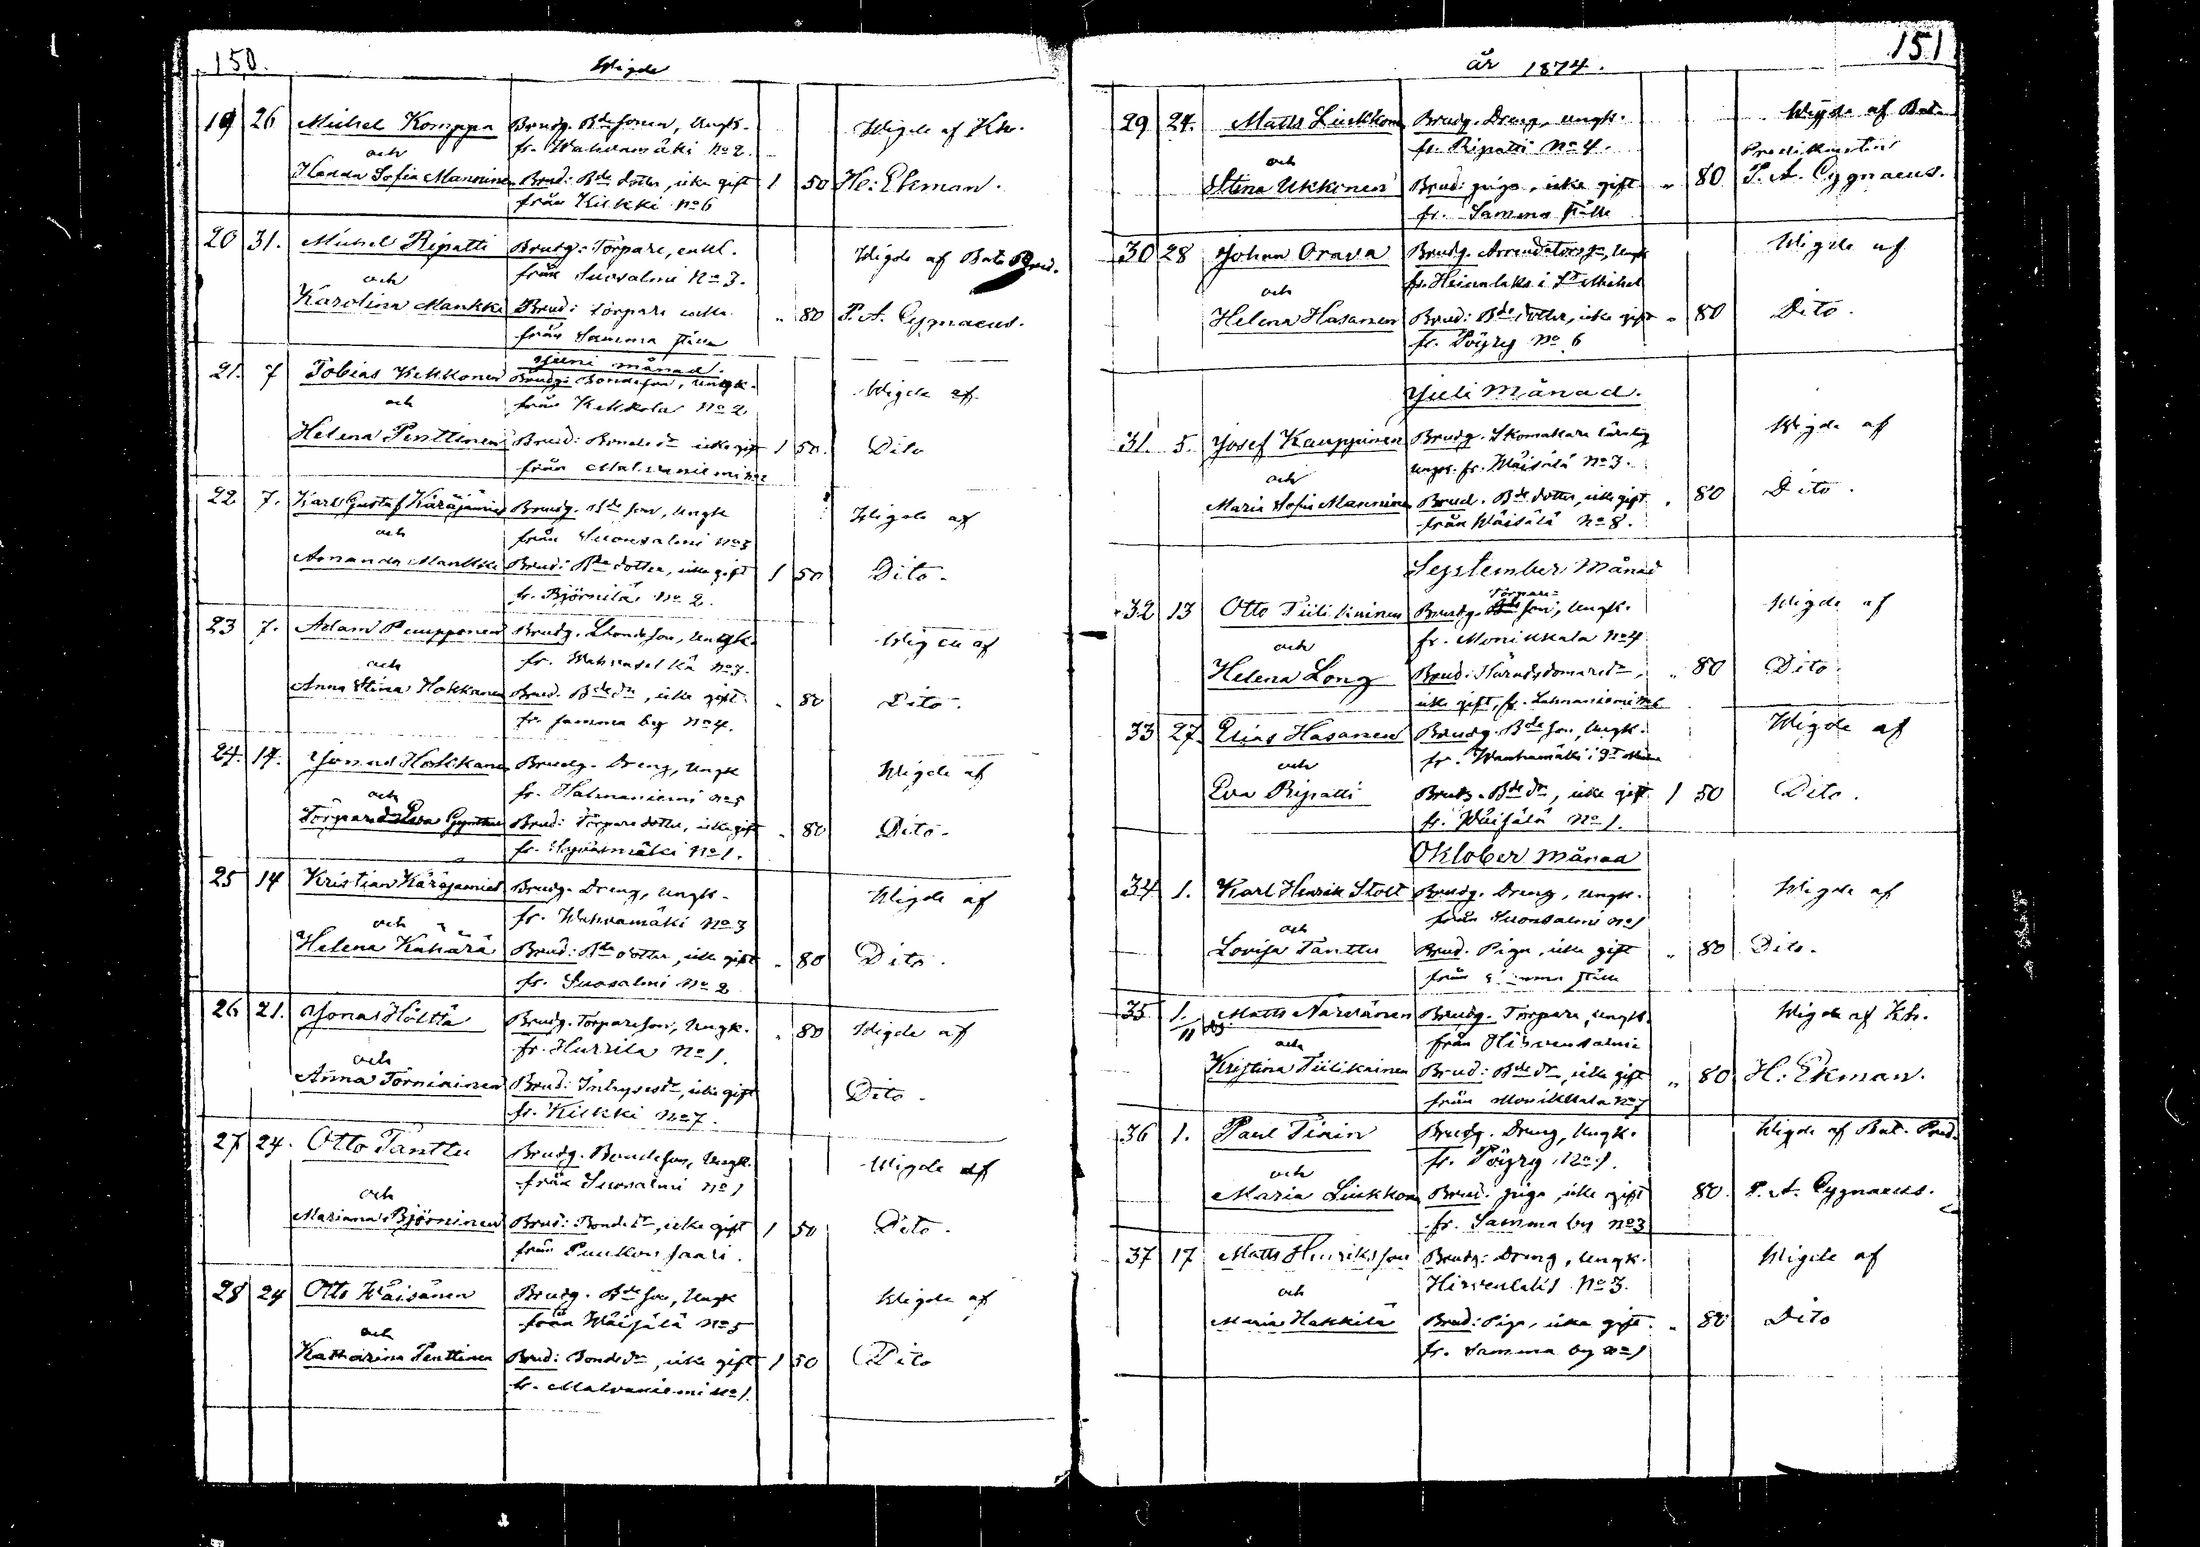 150.
Wigde
19 26 Michel Komppa Brudg. Bde sonen, Ungk.
och fr. Wahvamäki No 2. Wigde af Kh.
Hanna Sofia Manninen Brud: Bde dotter, icke gift 1 50 H: Ekman.
från Kiekki No 6
20 31. Michel Ripatti Brudg: Torpare, enkl.
från Suosalmi No 3. Wigde af Bat. Pred.
och
Karolina Mankki Brud: torpare enka " 80 P. A. Cygnaeus.
från Samma ställe
Juni månad.
21. 7 Tobias Kekkonen Brudg: Bondeson, Ungk. Wigde af
och från Kekkola No 2
Helena Penttinen Brud: Bonde dr icke gift 1 50. Dito
från No 2
22 7. Karl Gustaf Käräjämies Brudg. Bde son, Ungk Wigde af
och från Suonsalmi No 3
Amanda Mankki Brud: Bde dotter, icke gift 1 50 Dito.
fr. Björnilä No 2.
23 7. Adam Pumpponen Brudg. Bondeson, Ungk. Wigde af
och fr. Wahvaselkä No 3.
Anna Stina Hokkanen Brud. Bde dr, icke gift " 80 Dito.
fr. samma by No 4.
24. 14. Jonas Hokkanen Brudg. Dreng, Ungk Wigde af
och fr. Halmaniemi No 5
Torpare dr Eva Brud: Torpare dotter, icke gift " 80 Dito.
fr. No 1.
25 14 Kristian Käräjämies Brudg. Dreng, Ungk. Wigde af
och fr. Wahvamäki No 3
Helena Kähärä Brud: Bde dotter, icke gift " 80 Dito.
fr. Suosalmi No 2
26 21. Jonas Hölttä Brudg. Torpareson, Ungk. " 80 Wigde af
fr. Hurrila No 1.
och
Anna Torniainen Brud: Inhyses dr, icke gift Dito.
fr. Kiekki No 7.
27 24. Otto Tanttu Brudg. Bondeson, Ungk. Wigde af
från Suosalmi No 1
och
Mariana Björninen Brud: Bonde dr, icke gift 1 50 Dito.
från Puukonsaari.
28 24 Otto Wäisänen Brudg. Bde son, Ungk Wigde af
från Wäisälä No 5
och
Katharina Penttinen Brud: Bonde dr, icke gift 1 50 Dito
fr. No 1.
151
år 1874.
29 24. Matts Liukkonen Brudg. Dreng, Ungk. Wigde af Bat.
fr. Ripatti No 4. Predikanten
och
Stina Ukkonen Brud: piga, icke gift " 80 P. A. Cygnaeus.
fr. Samma ställe
30 28 Johan Orava Brudg. Arrendators son, Ungk Wigde af
fr. i St Michel
och
Helena Hasanen Brud: Bde dotter, icke gift " 80 Dito.
fr. Pöyry No 6
Juli Månad.
31. 5. Josef Kauppinen Brudg. Skomakare lärling Wigde af
ungk. fr. Wäisälä No 3.
och
Maria Sofia Manninen Brud. Bde dotter, icke gift " 80 Dito.
från Wäisälä No 8.
September Månad
Torpare-
32 13 Otto Tiilikainen Brudg. son, Ungk. Wigde af
fr. Monikkala No 4
och
Helena Long Brud: Häradsdomare dr, " 80 Dito.
icke gift, fr. No 6
33 27 Elias Hasanen Brudg. Bde son, Ungk. Wigde af
fr. Wanhamäki i St
och
Eva Ripatti Brud. Bde dr, icke gift 1 50 Dito.
fr. Wäisälä No 1.
Oktober månad
34 1. Karl Henrik Stolt Brudg. Dreng, Ungk. Wigde af
från Suonsalmi No 1
och
Lovisa Tanttu Brud. Piga, icke gift " 80 Dito.
från samma ställe
35 1. Matts Närvänen Brudg. Torpare, Ungk. Wigde af Kh.
11 från Hirvensalmi
och
Kristina Tiilikainen Brud: Bde dr, icke gift " 80 H: Ekman.
från Monikkala No 7
36 1. Paul Tirin Brudg. Dreng, Ungk. Wigde af Bat. Pred.
fr. Pöyry No 1.
och
Maria Liukkonen Brud. piga, icke gift 80. P. A. Cygnaeus.
fr. Samma by No 3
37 17 Matts Henriksson Brudg: Dreng, Ungk. Wigde af
Hirvenlaks No 3.
och
Maria Hakkila Brud: Piga, icke gift. " 80 Dito
fr. Samma by No 1